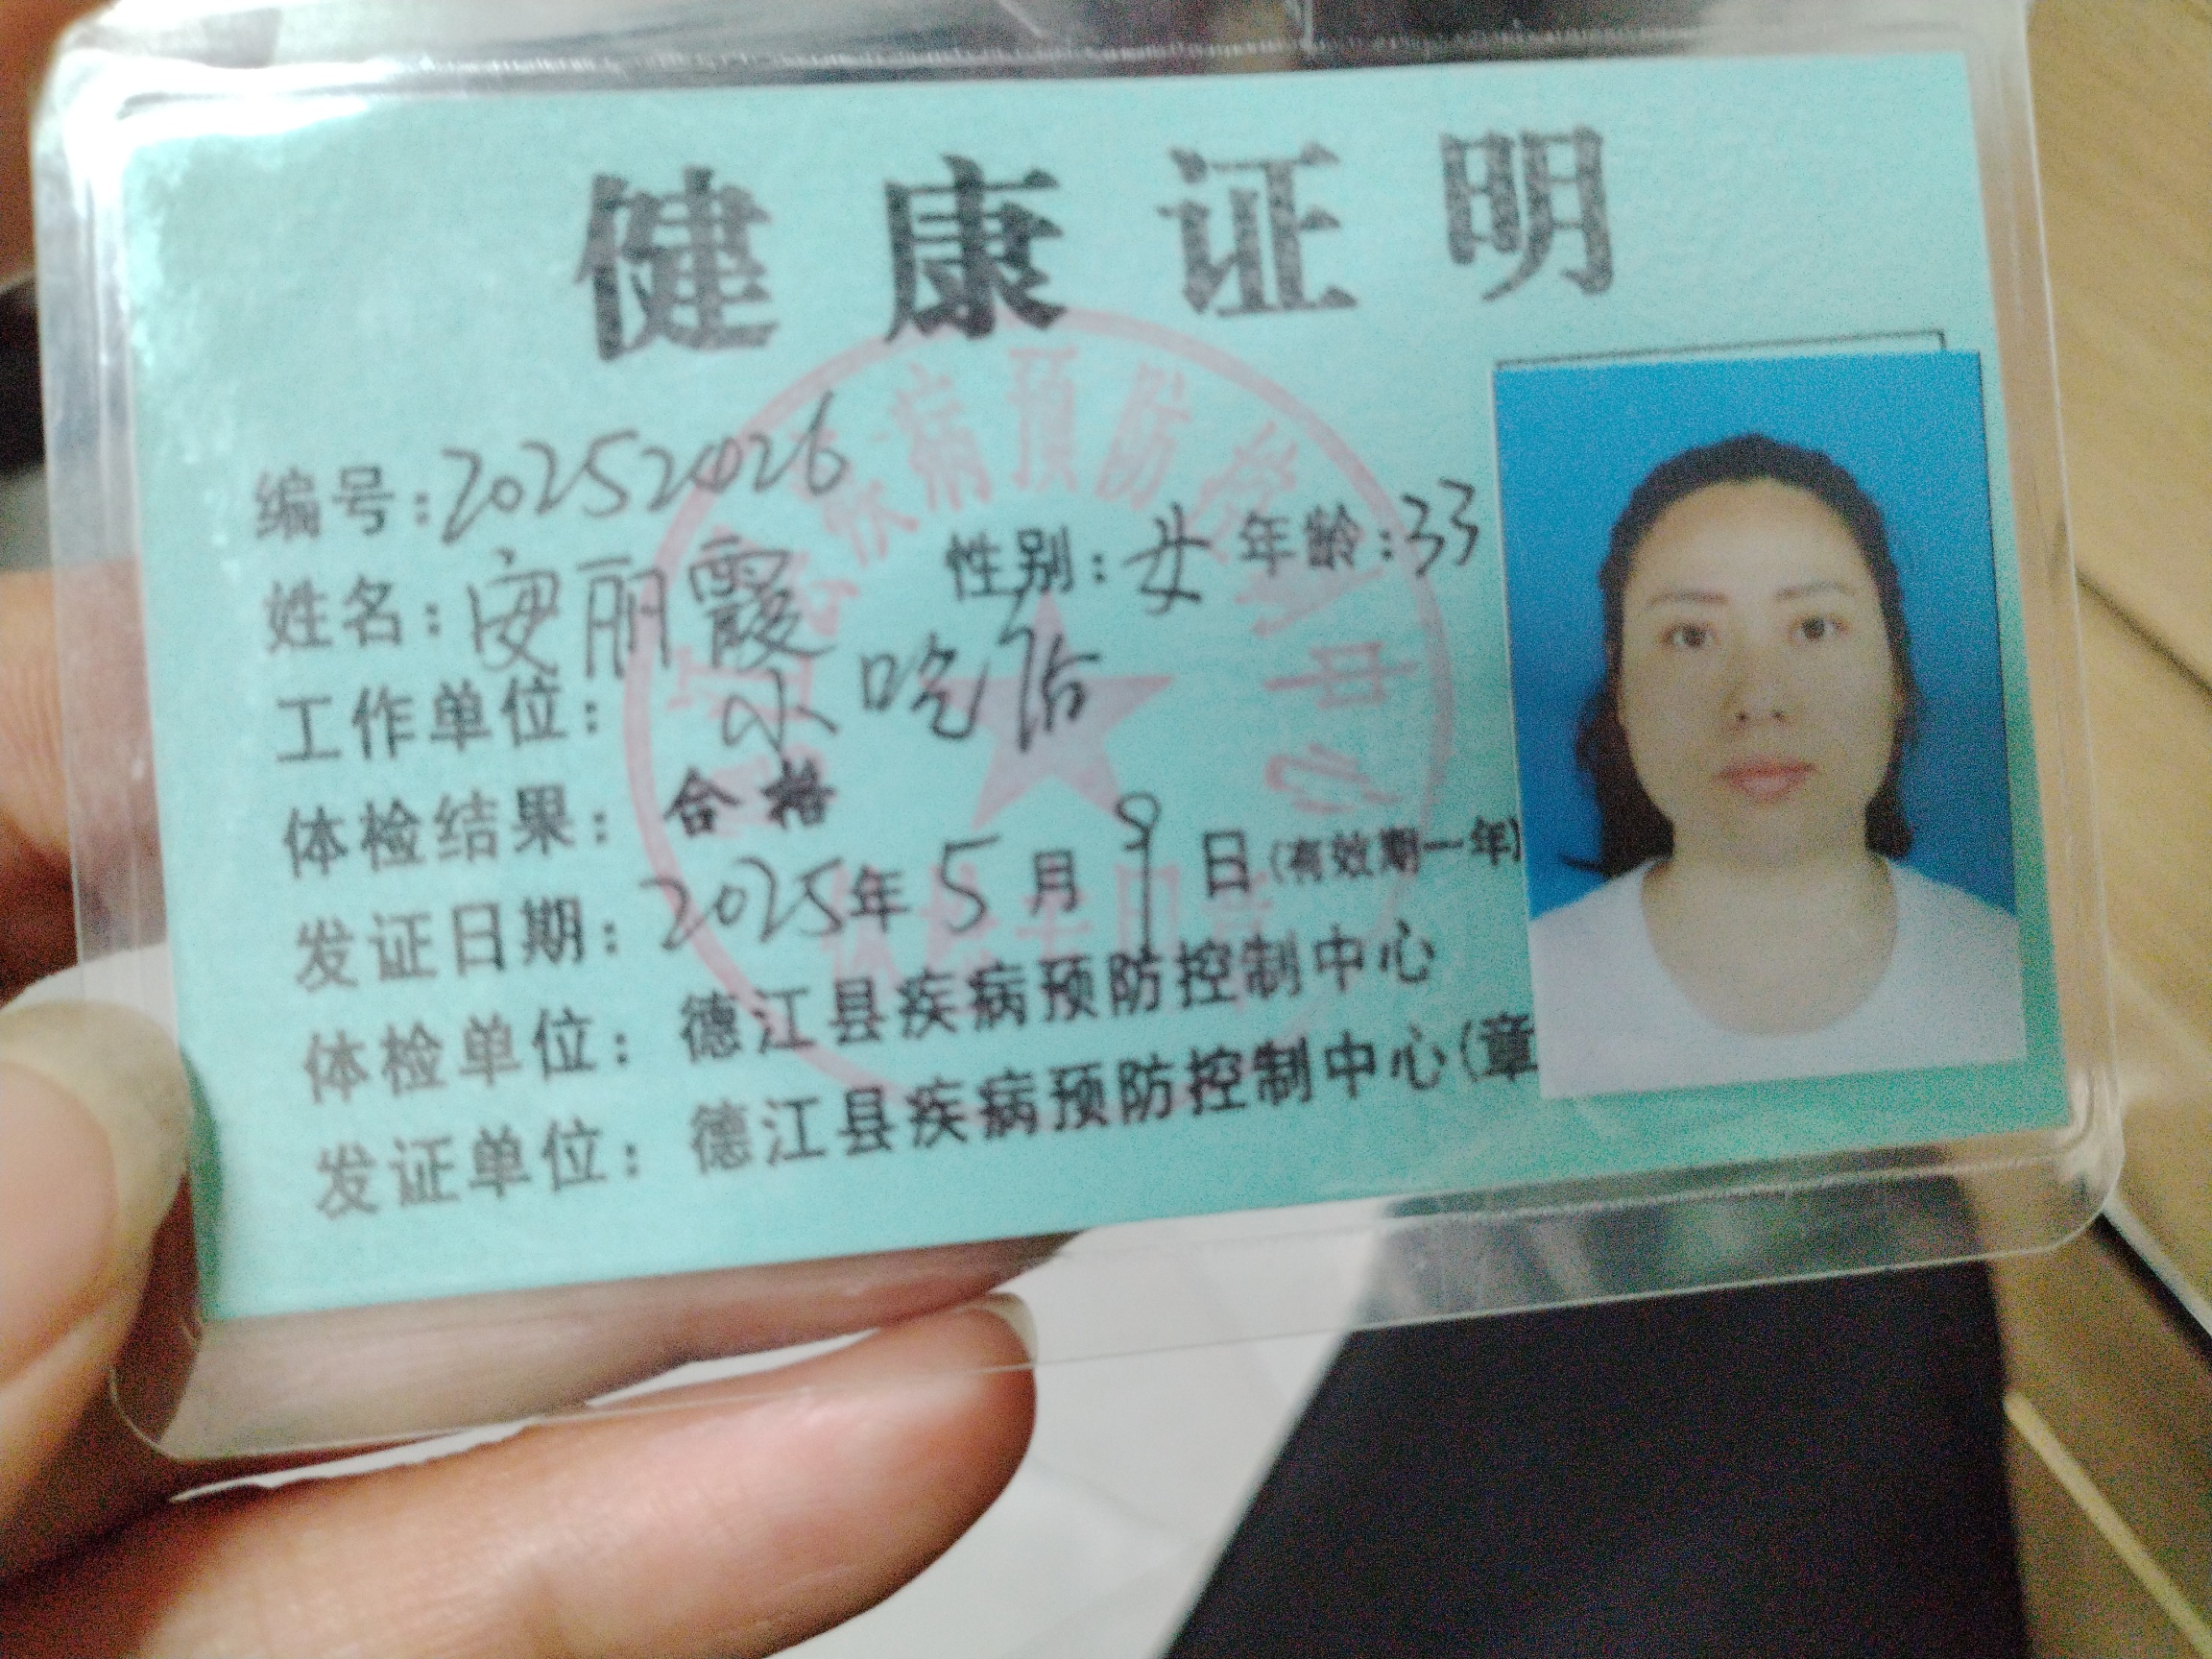 健康证明
编号:20252026
姓名:安丽霞 性别:女 年龄:33
工作单位: 小吃店
体检结果: 合格
发证日期: 2025年5月9日(有效期一年)
体检单位: 德江县疾病预防控制中心
发证单位: 德江县疾病预防控制中心(章